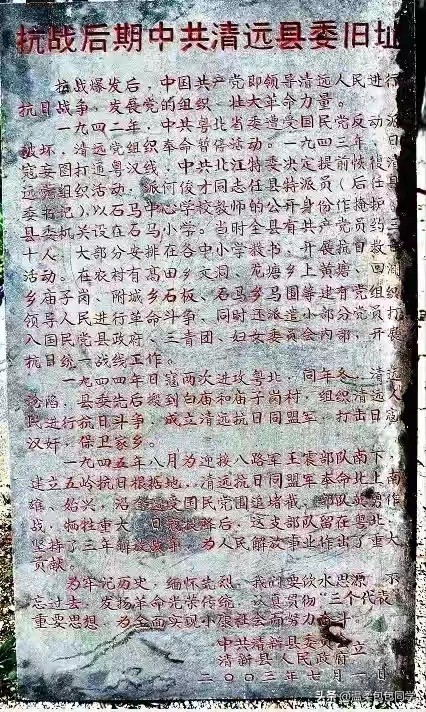 抗战后期中共清远县委旧址
抗战爆发后，中国共产党即领导清远人民进行
抗日战争，发展党的组织，壮大革命力量。
一九四二年，中共粤北省委遭受国民党反动派
破坏，清远党组织奉命暂停活动。一九四三年，日
寇妄图打通粤汉线，中共北江特委决定提前恢复清
远党组织活动，派何俊才同志任县特派员（后任县
委书记），以石马中心学校教师的公开身份作掩护，
县委机关设在石马小学。当时全县有共产党员约三
十人，大部分安排在各中小学教书，开展抗日救亡
活动。在农村有高田乡文洞、龙塘乡上黄塘、回澜
乡庙子岗、附城乡石板、石马乡马围等建有党组织
领导人民进行革命斗争，同时还派遣小部分党员打
入国民党县政府、三青团、妇女委员会内部，开展
抗日统一战线工作。
一九四四年日寇两次进攻粤北，同年冬，清远
沦陷，县委先后搬到白庙和庙子岗村，组织清远人
民进行抗日斗争，成立清远抗日同盟军，打击日寇
汉奸，保卫家乡。
一九四五年八月为迎接八路军王震部队南下
建立五岭抗日根据地，清远抗日同盟军奉命北上南
雄、始兴，沿途遭受国民党围追堵截，部队英勇作
战，牺牲重大。日寇投降后，这支部队留在粤北，
坚持了三年解放战争，为人民解放事业作出了重大
贡献。
为牢记历史，缅怀先烈，我们要饮水思源，不
忘过去，发扬革命光荣传统，认真贯彻“三个代表”
重要思想，为全面实现小康社会而努力奋斗。
中共清新县委员会 立
清新县人民政府
二〇〇三年七月一日
头条@温柔包包同学